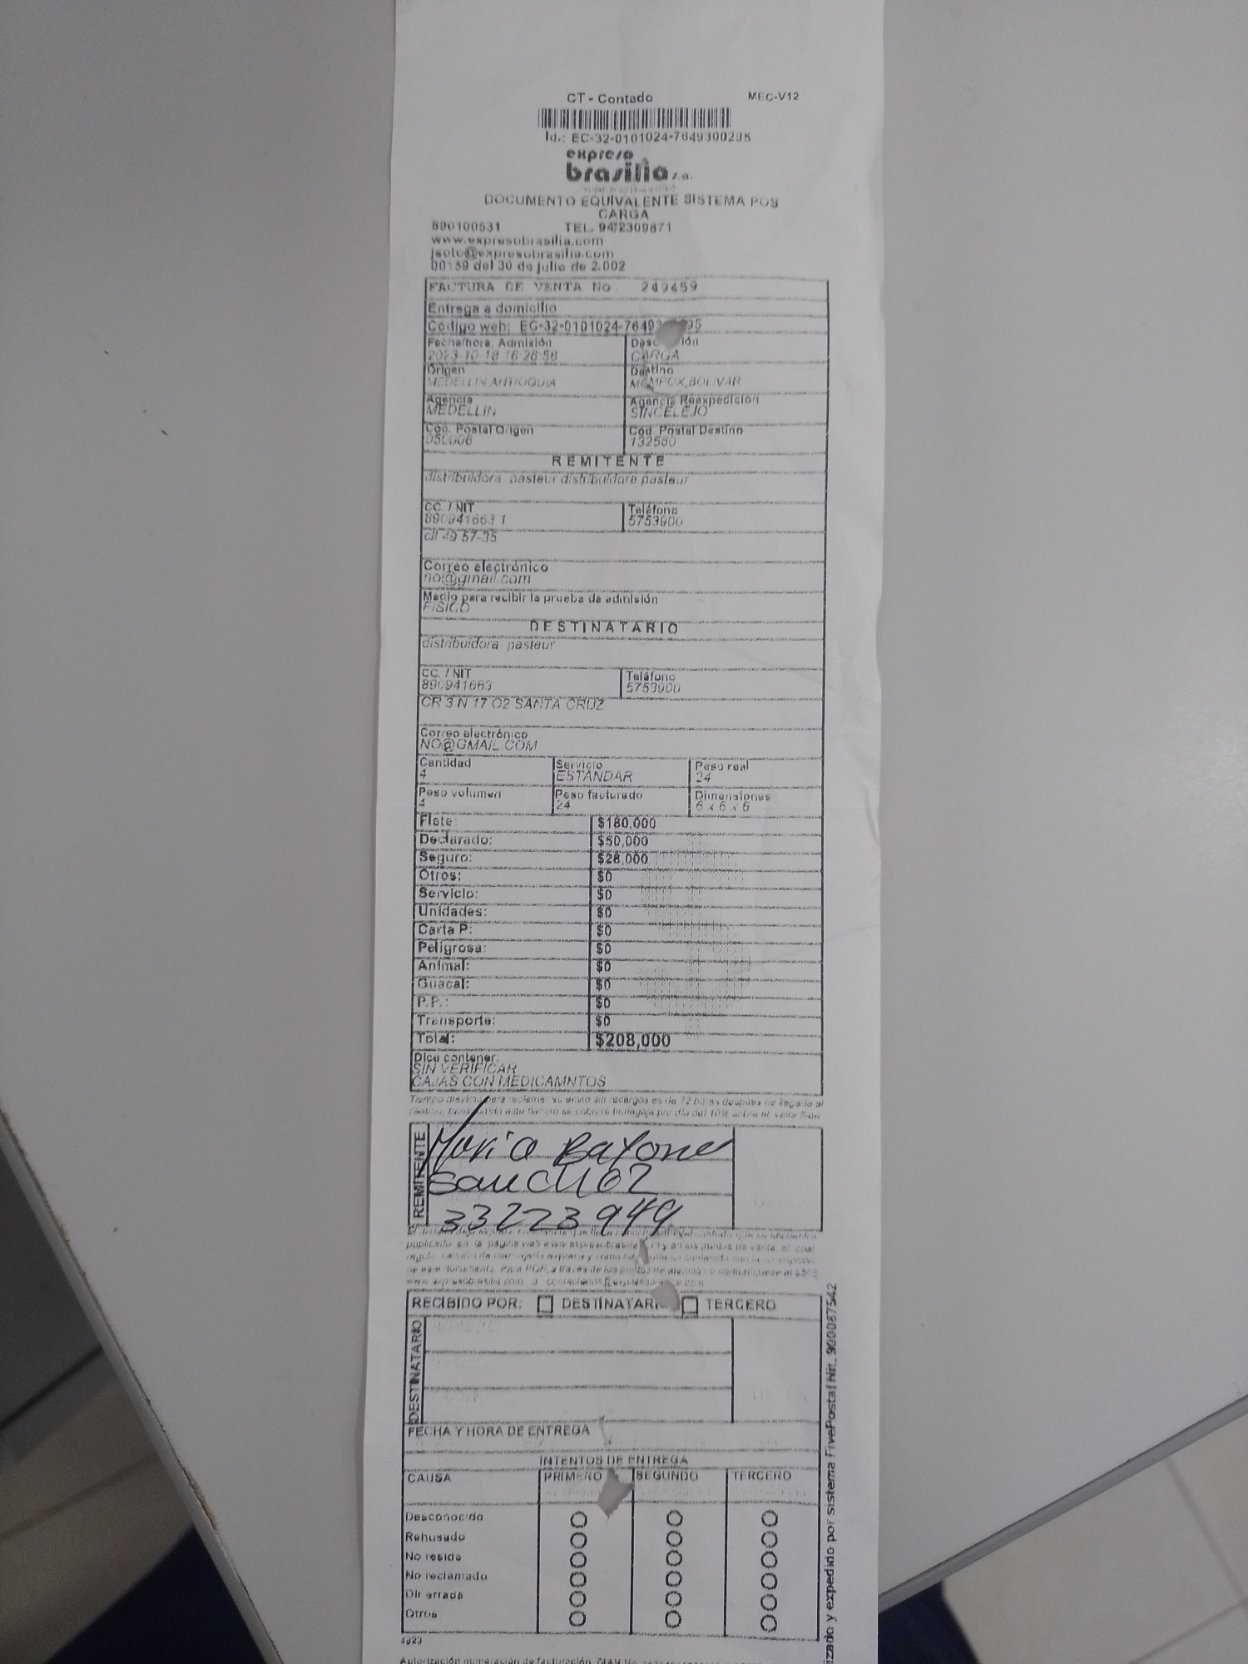 CT - Contado MEC-V12
Id.: EC-32-0101024-7649300295
expreso
brasilia s.a.
DOCUMENTO EQUIVALENTE SISTEMA POS
CARGA
890100531 TEL.
www.expresobrasilia.com
jsoto@expresobrasilia.com
00159 del 30 de julio de 2.002
FACTURA DE VENTA No. 249459
Entrega a domicilio
Código web: EC-32-0101024-7649 95
Fecha/hora. Admisión
2023-10-18 16:26:58
CARGA
Origen Destino
MEDELLIN ANTIOQUIA MOMPOX,BOLIVAR
Agencia Agencia Reexpedición
MEDELLIN SINCELEJO
Cod. Postal Origen Cod. Postal Destino
050006 132560
REMITENTE
distribuidora pasteur distribuidora pasteur
CC. / NIT Teléfono
890941663 1 5753900
cll 49 57-35
Correo electrónico
no@gmail.com
Medio para recibir la prueba de admisión
FISICO
DESTINATARIO
distribuidora pasteur
CC. / NIT Teléfono
890941663 5753900
CR 3 N 17 02 SANTA CRUZ
Correo electrónico
NO@GMAIL.COM
Cantidad Servicio Peso real
4 ESTANDAR 24
Peso volumen Peso facturado Dimensiones
4 24 6 x 6 x 6
Flete: $180,000
Declarado: $50,000
Seguro: $28,000
Otros: $0
Servicio: $0
Unidades: $0
Carta P: $0
Peligrosa: $0
Animal: $0
Guacal: $0
P.P.: $0
Transporte: $0
Total: $208,000
Dice contener:
SIN VERIFICAR
CAJAS CON MEDICAMNTOS
REMITENTE
Maria Bayone
Sanchez
33223949
RECIBIDO POR: DESTINATARI TERCERO
DESTINATARIO
FECHA Y HORA DE ENTREGA
INTENTOS DE ENTREGA
CAUSA PRIMERO SEGUNDO TERCERO
Desconocido
Rehusado
No reside
No reclamado
Dir errada
Otros
4923
izado y expedido por sistema FivePostal Nit. 900087542